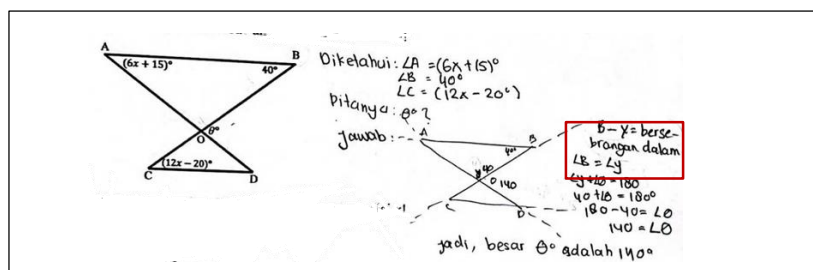 A
B
(6x + 15)°
40°
θ°
O
(12x − 20)°
C
D
Diketahui: ∠A = (6x + 15)°
∠B = 40°
∠C = (12x − 20°)
Ditanya: θ° ?
Jawab:
A
B
40°
y 40
θ 140
C
D
B − y = berse-
brangan dalam
∠B = ∠y
∠y + ∠θ = 180
40 + ∠θ = 180°
180 − 40 = ∠θ
140 = ∠θ
jadi, besar θ° adalah 140°